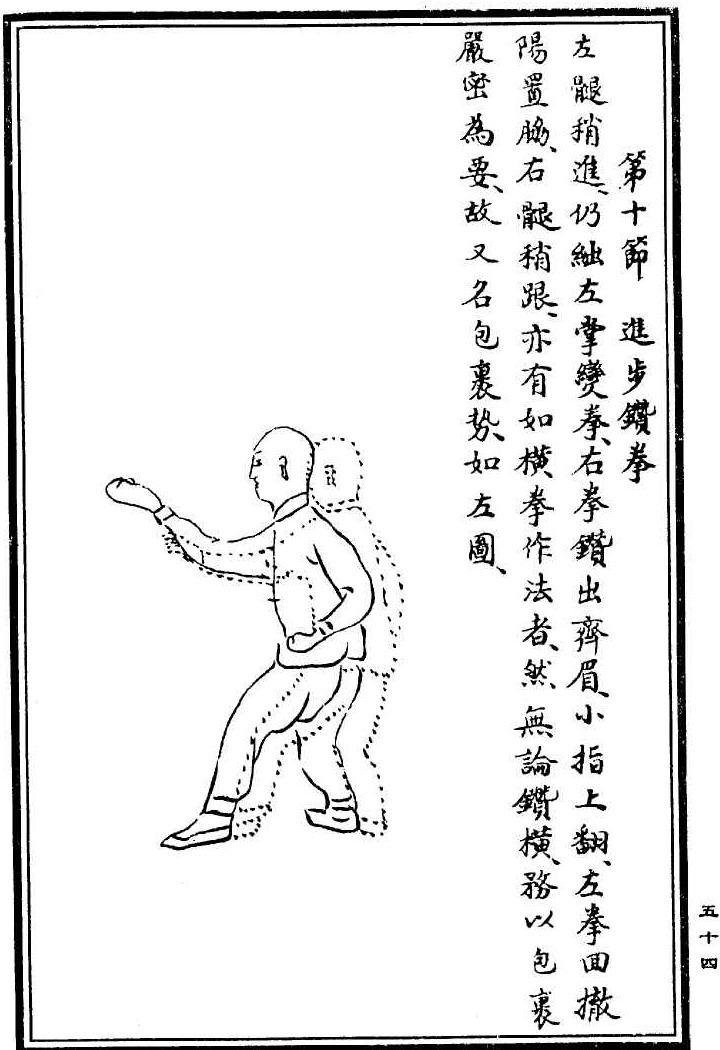 第十節　進步鑽拳
左腿稍進、仍絀左掌變拳、右拳鑽出齊眉、小指上翻、左拳回撤
陽置脇、右腿稍跟、亦有如橫拳作法者、然無論鑽橫、務以包裹
嚴密為要、故又名包裹勢、如左圖、
五十四